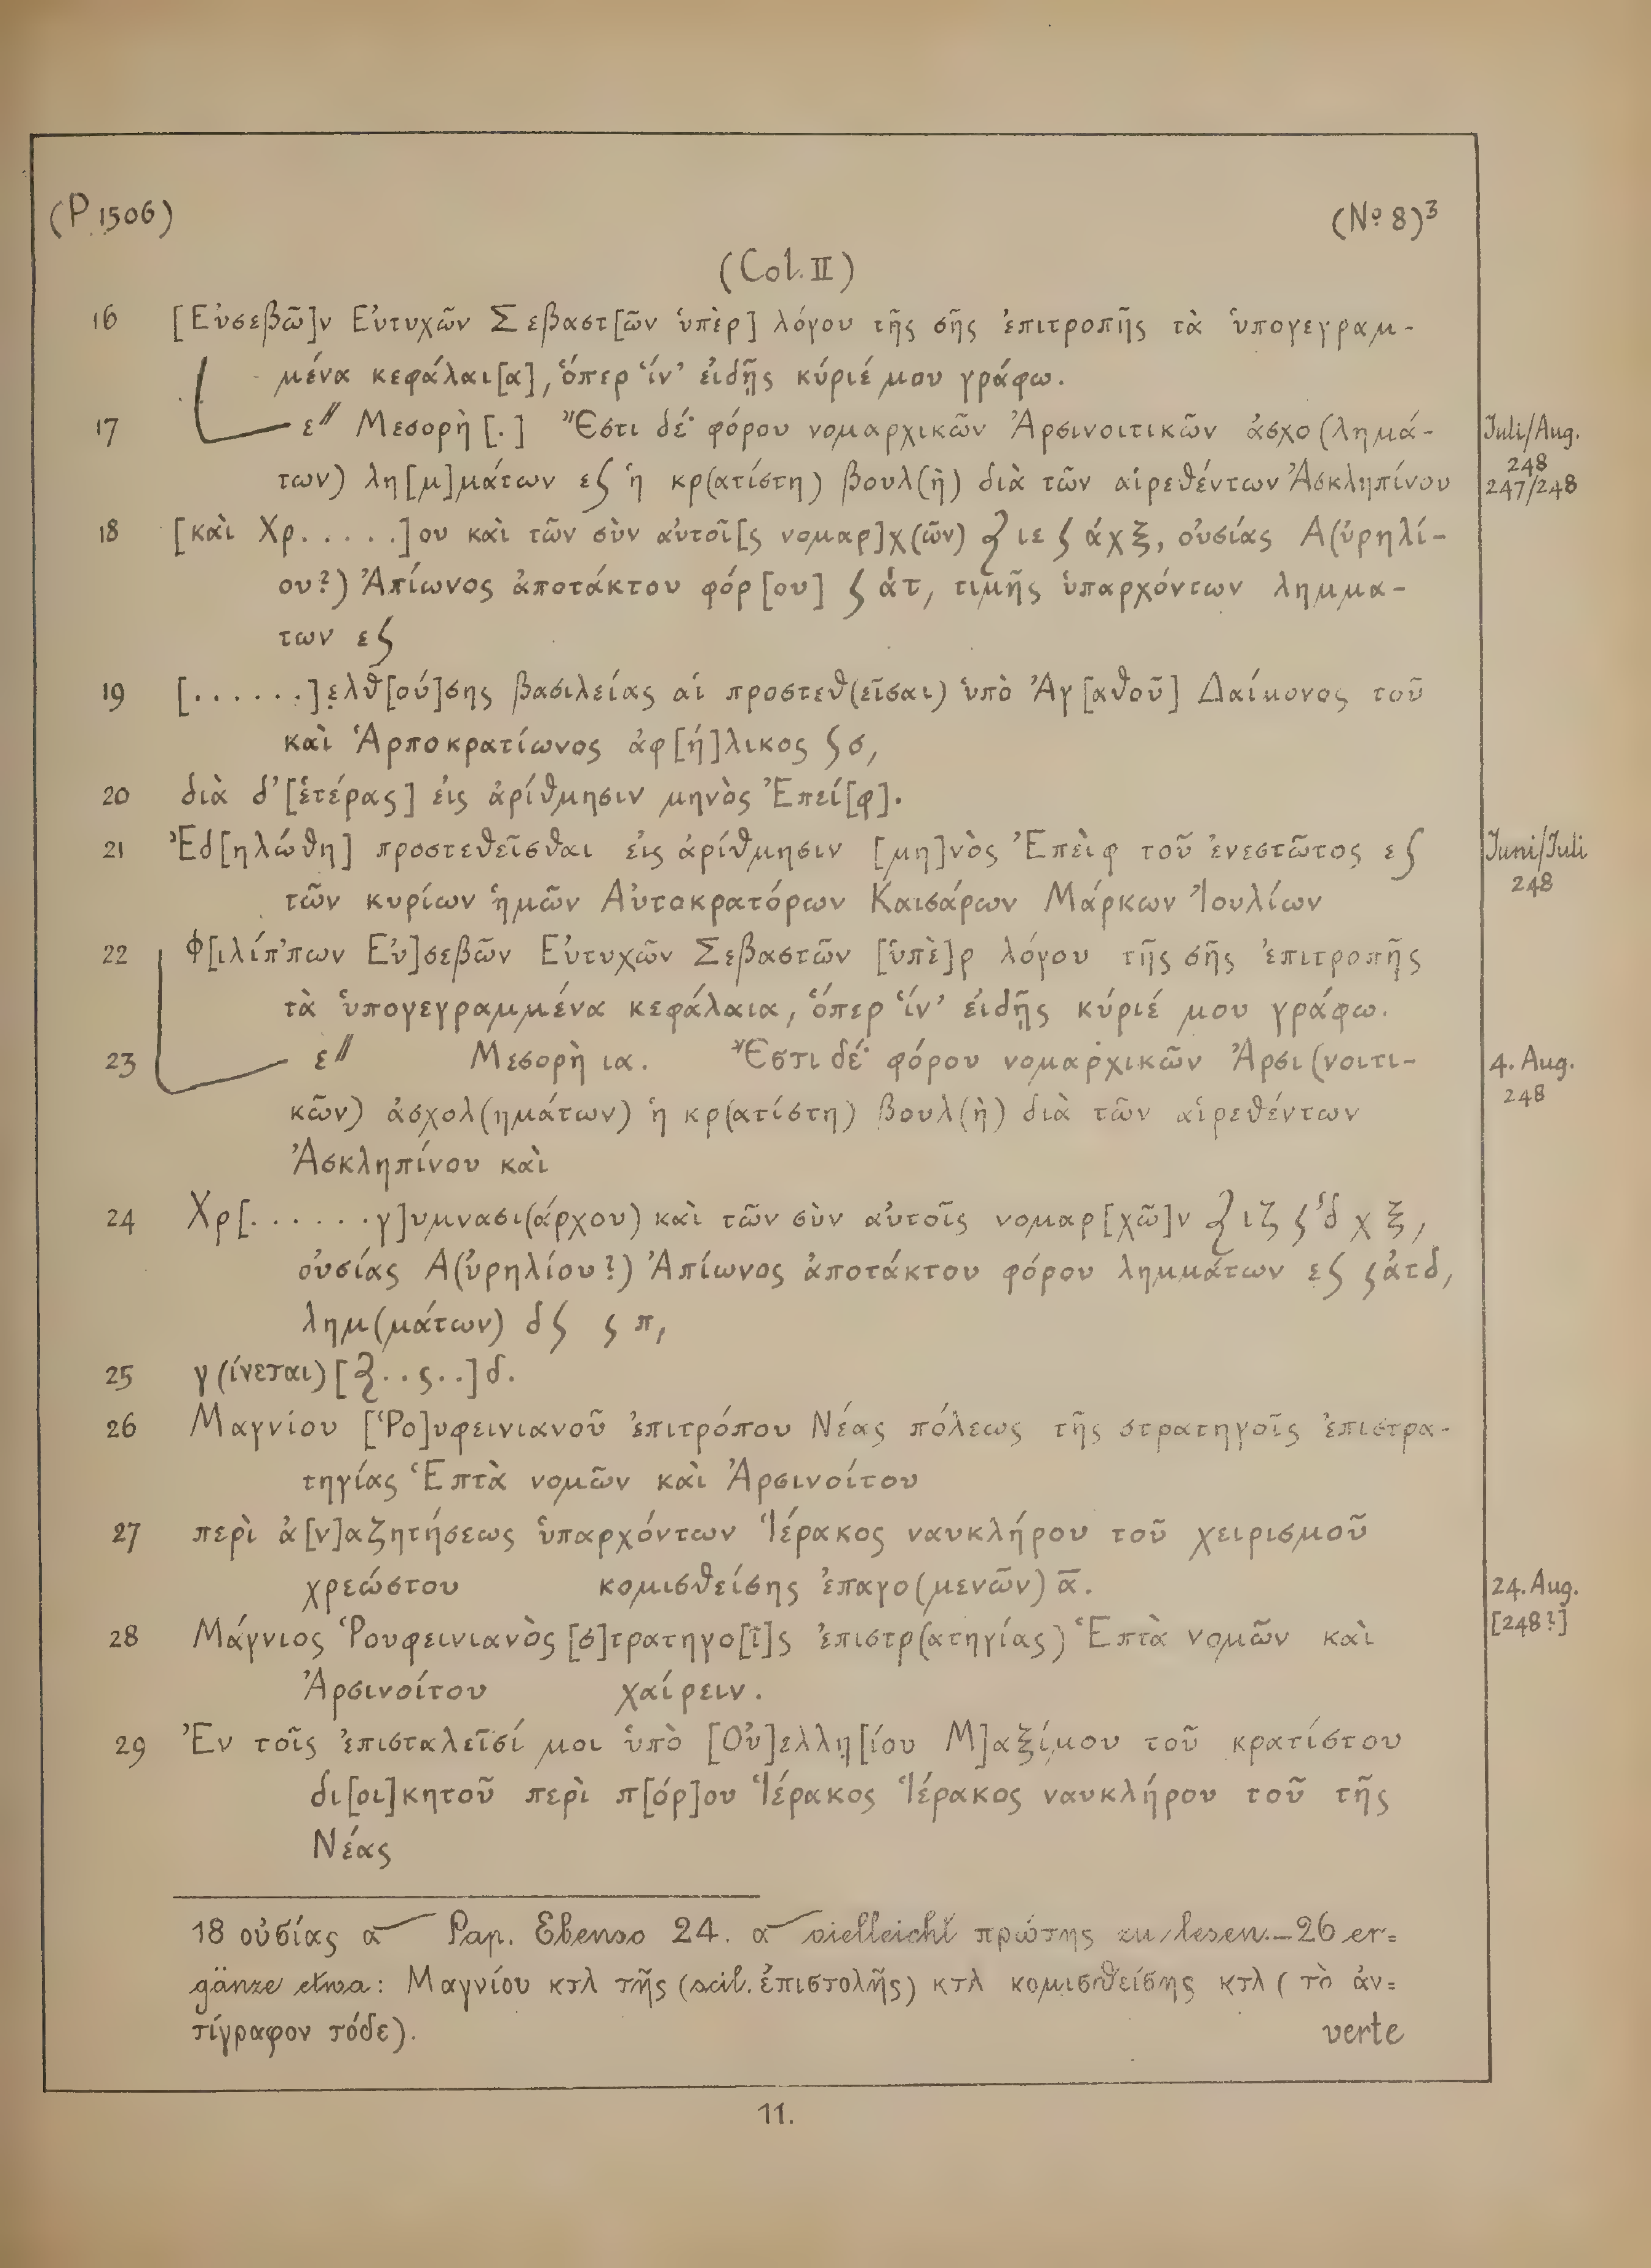 (P 1506) (Nº 8)³
(Col. II)
16 [Εὐσεβῶ]ν Εὐτυχῶν Σεβαστ[ῶν ὑπὲρ] λόγου τῆς σῆς ἐπιτροπῆς τὰ ὑπογεγραμ-
μένα κεφάλαι[α], ὅπερ ἵν' εἰδῇς κύριέ μου γράφω.
17 ε// Μεσορὴ [.] Ἔστι δέ· φόρου νομαρχικῶν Ἀρσινοιτικῶν ἀσχο(λημά- Juli/Aug. 248
των) λη[μ]μάτων εϛ ἡ κρ(ατίστη) βουλ(ὴ) διὰ τῶν αἱρεθέντων Ἀσκληπίνου 247/248
18 [καὶ Χρ.....]ου καὶ τῶν σὺν αὐτοῖ[ς νομαρ]χ(ῶν) ⁊ ιε ϛ άχξ, οὐσίας Α(ὐρηλί-
ου?) Ἀπίωνος ἀποτάκτου φόρ[ου] ϛ άτ, τιμῆς ὑπαρχόντων λημμα-
των εϛ
19 [......]ελθ[ού]σης βασιλείας αἱ προστεθ(εῖσαι) ὑπὸ Ἀγ[αθοῦ] Δαίμονος τοῦ
καὶ Ἁρποκρατίωνος ἀφ[ή]λικος ϛσ,
20 διὰ δ' [ἑτέρας] εἰς ἀρίθμησιν μηνὸς Ἐπεί[φ].
21 Ἐδ[ηλώθη] προστεθεῖσθαι εἰς ἀρίθμησιν [μη]νὸς Ἐπεὶφ τοῦ ἐνεστῶτος εϛ Juni/Juli
τῶν κυρίων ἡμῶν Αὐτοκρατόρων Καισάρων Μάρκων Ἰουλίων 248
22 Φ[ιλίππων Εὐ]σεβῶν Εὐτυχῶν Σεβαστῶν [ὑπὲ]ρ λόγου τῆς σῆς ἐπιτροπῆς
τὰ ὑπογεγραμμένα κεφάλαια, ὅπερ ἵν' εἰδῇς κύριέ μου γράφω.
23 ε// Μεσορὴ ια. Ἔστι δέ· φόρου νομαρχικῶν Ἀρσι(νοιτι- 4. Aug.
κῶν) ἀσχολ(ημάτων) ἡ κρ(ατίστη) βουλ(ὴ) διὰ τῶν αἱρεθέντων 248
Ἀσκληπίνου καὶ
24 Χρ[......γ]υμνασι(άρχου) καὶ τῶν σὺν αὐτοῖς νομαρ[χῶ]ν ⁊ ιζ ϛ ʹδ χ ξ,
οὐσίας Α(ὐρηλίου?) Ἀπίωνος ἀποτάκτου φόρου λημμάτων εϛ ϛάτδ,
λημ(μάτων) δϛ ϛ π,
25 γ(ίνεται) [⁊..ϛ..]δ.
26 Μαγνίου [Ῥο]υφεινιανοῦ ἐπιτρόπου Νέας πόλεως τῆς στρατηγοῖς ἐπιστρα-
τηγίας Ἑπτὰ νομῶν καὶ Ἀρσινοίτου
27 περὶ ἀ[ν]αζητήσεως ὑπαρχόντων Ἱέρακος ναυκλήρου τοῦ χειρισμοῦ
χρεώστου κομισθείσης ἐπαγο(μενῶν) ᾱ. 24. Aug.
28 Μάγνιος Ῥουφεινιανὸς [σ]τρατηγο[ῖ]ς ἐπιστρ(ατηγίας) Ἑπτὰ νομῶν καὶ [248?]
Ἀρσινοίτου χαίρειν.
29 Ἐν τοῖς ἐπισταλεῖσί μοι ὑπὸ [Οὐ]ελλη[ίου Μ]αξίμου τοῦ κρατίστου
δι[οι]κητοῦ περὶ π[όρ]ου Ἱέρακος Ἱέρακος ναυκλήρου τοῦ τῆς
Νέας
18 οὐσίας α Pap. Ebenso 24. α vielleicht πρώτης zu lesen. – 26 er=
gänze etwa: Μαγνίου κτλ τῆς (scil. ἐπιστολῆς) κτλ κομισθείσης κτλ (τὸ ἀν=
τίγραφον τόδε). verte
11.